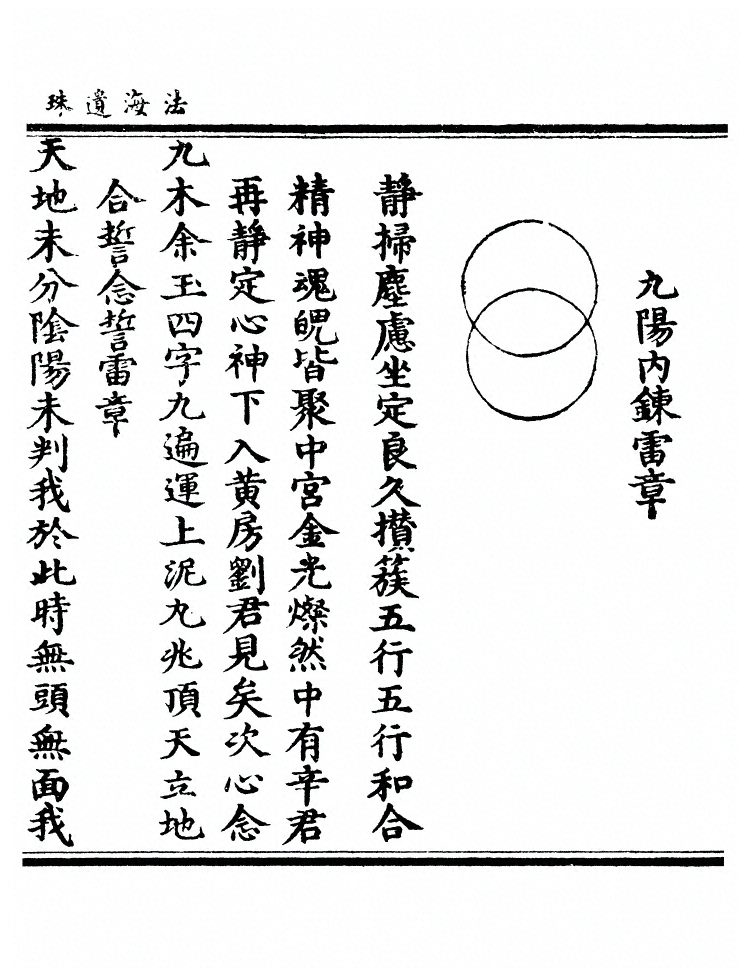 法海遺珠
九陽內鍊雷章
靜掃塵慮坐定良久攢簇五行五行和合
精神魂魄皆聚中宮金光燦然中有辛君
再靜定心神下入黃房劉君見矣次心念
九木余玉四字九遍運上泥九兆頂天立地
合誓念誓雷章
天地未分陰陽未判我於此時無頭無面我